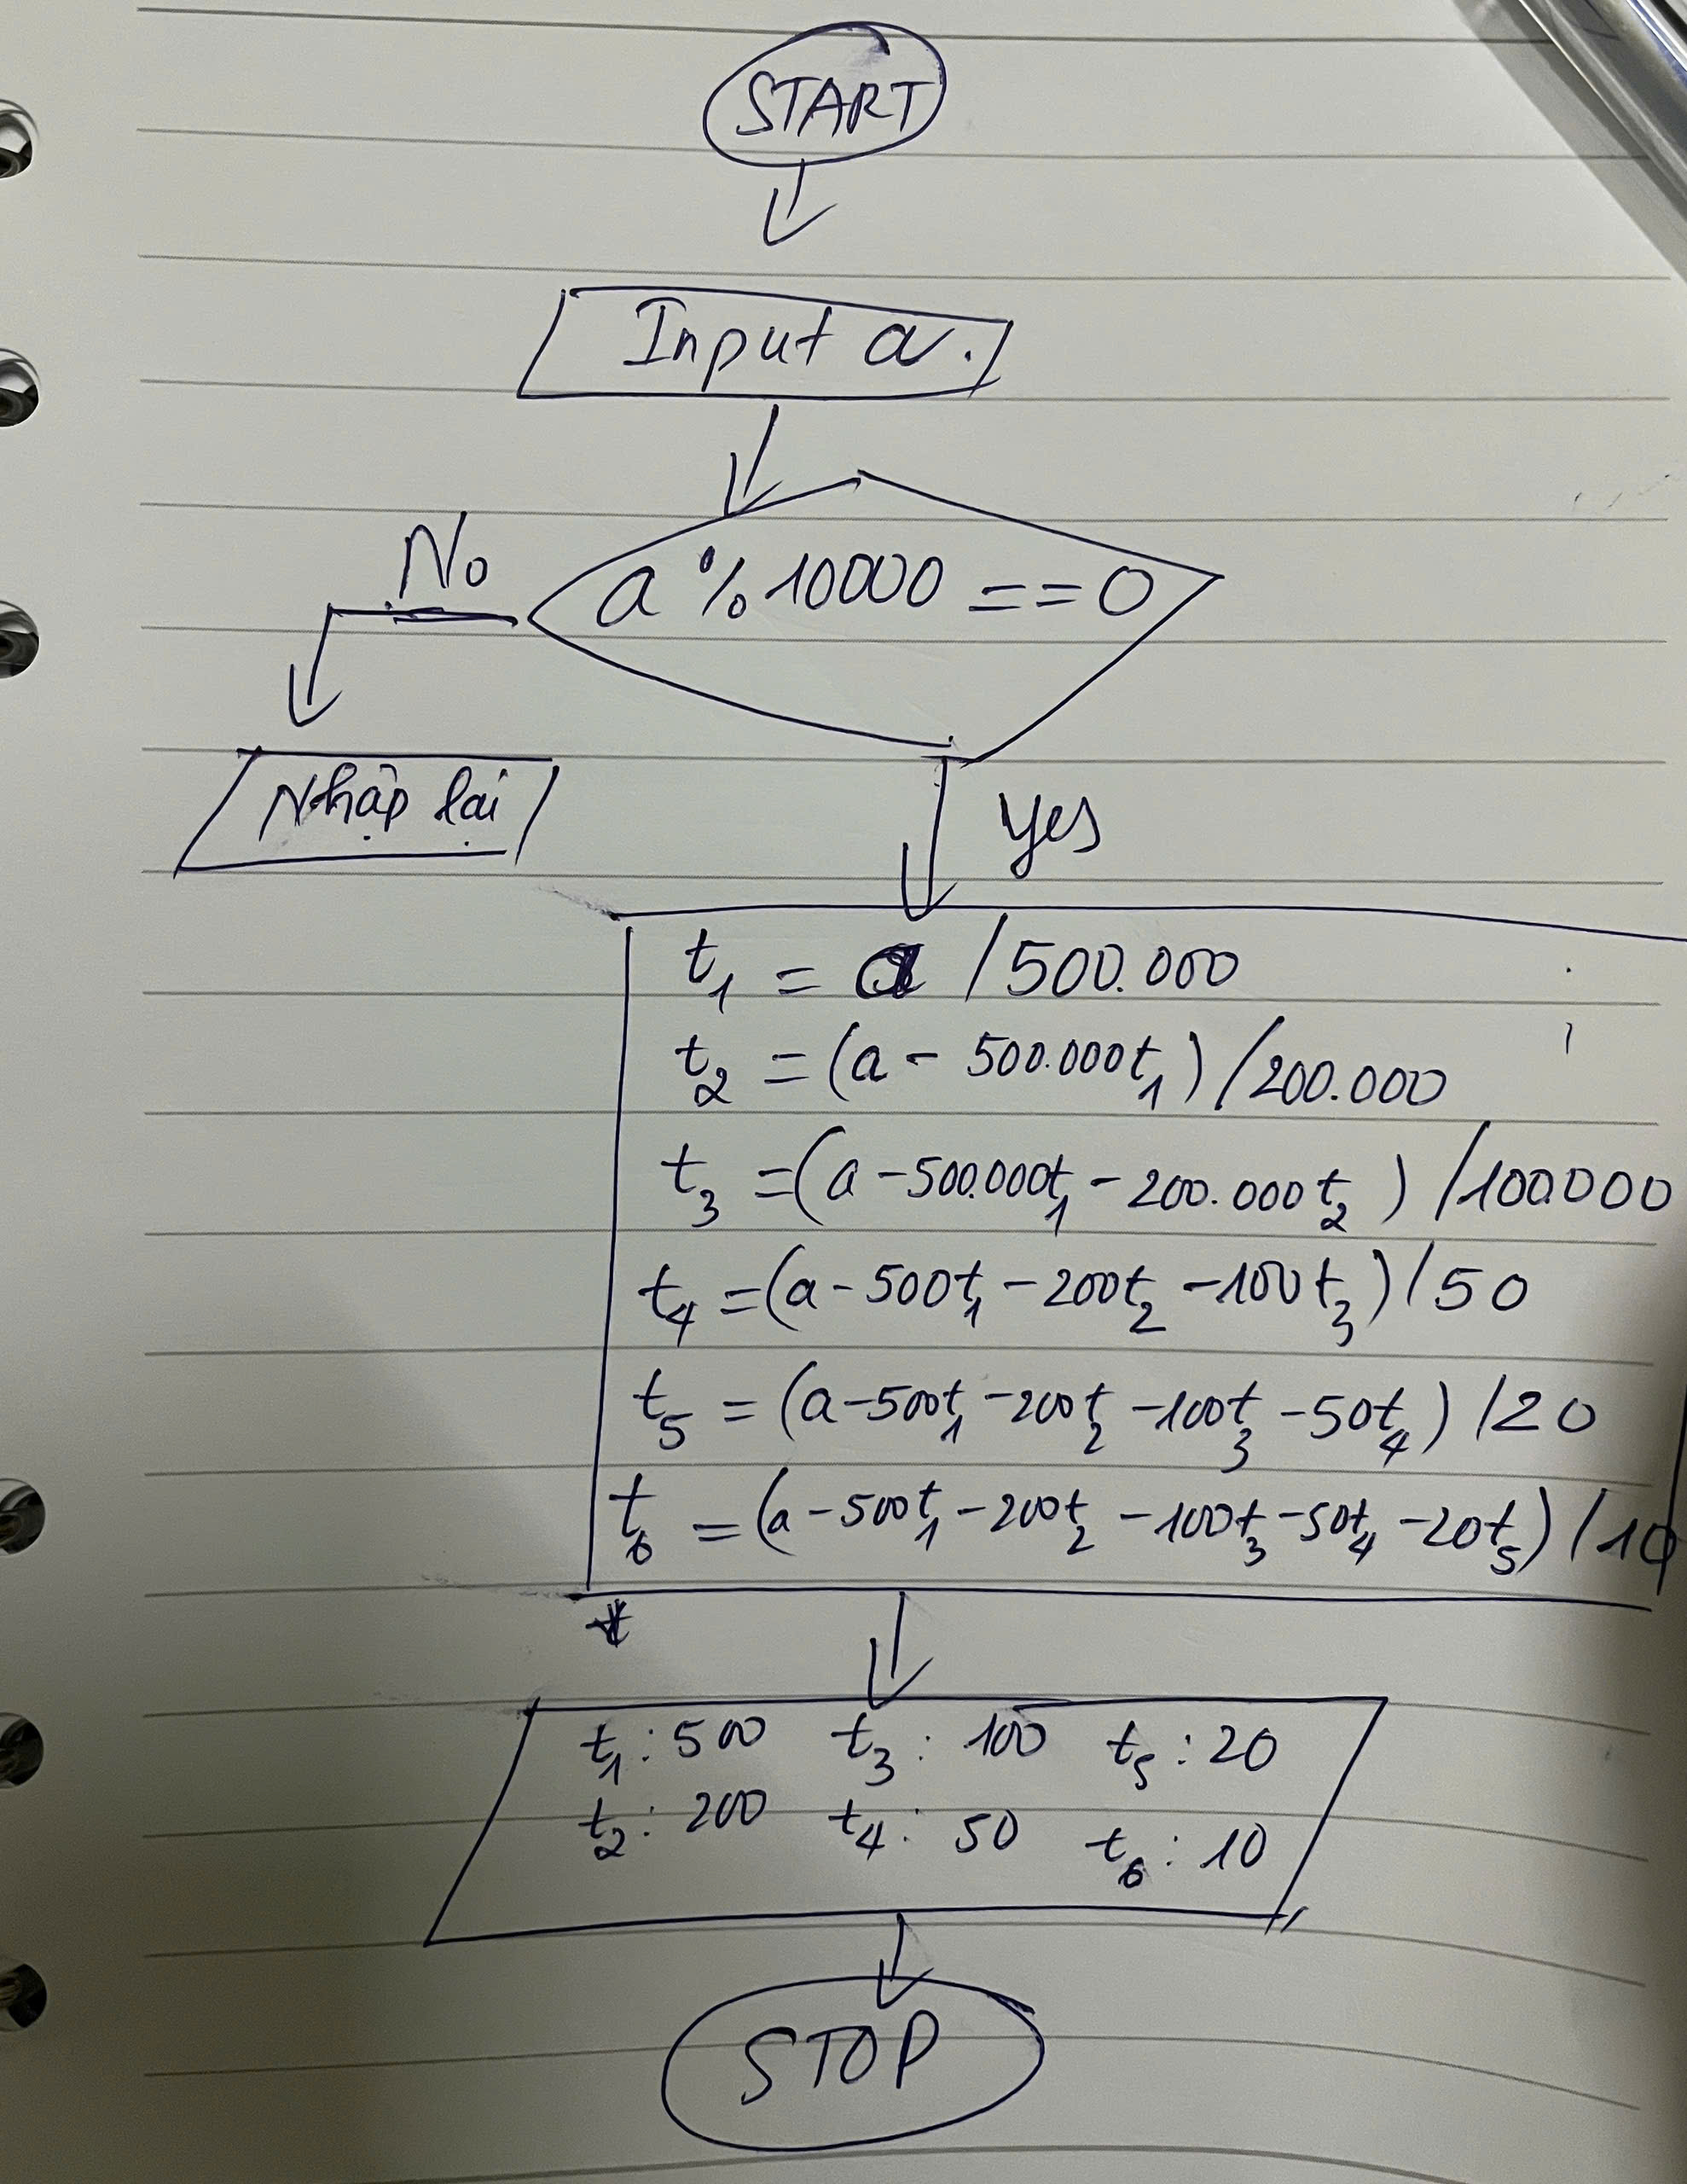 START
Input a.
a % 10000 == 0
No
Nhập lại
Yes
t1 = a / 500.000
t2 = (a - 500.000t1) / 200.000
t3 = (a - 500.000t1 - 200.000t2) / 100.000
t4 = (a - 500t1 - 200t2 - 100t3) / 50
t5 = (a - 500t1 - 200t2 - 100t3 - 50t4) / 20
t6 = (a - 500t1 - 200t2 - 100t3 - 50t4 - 20t5) / 10
t1 : 500 t3 : 100 t5 : 20
t2 : 200 t4 : 50 t6 : 10
STOP